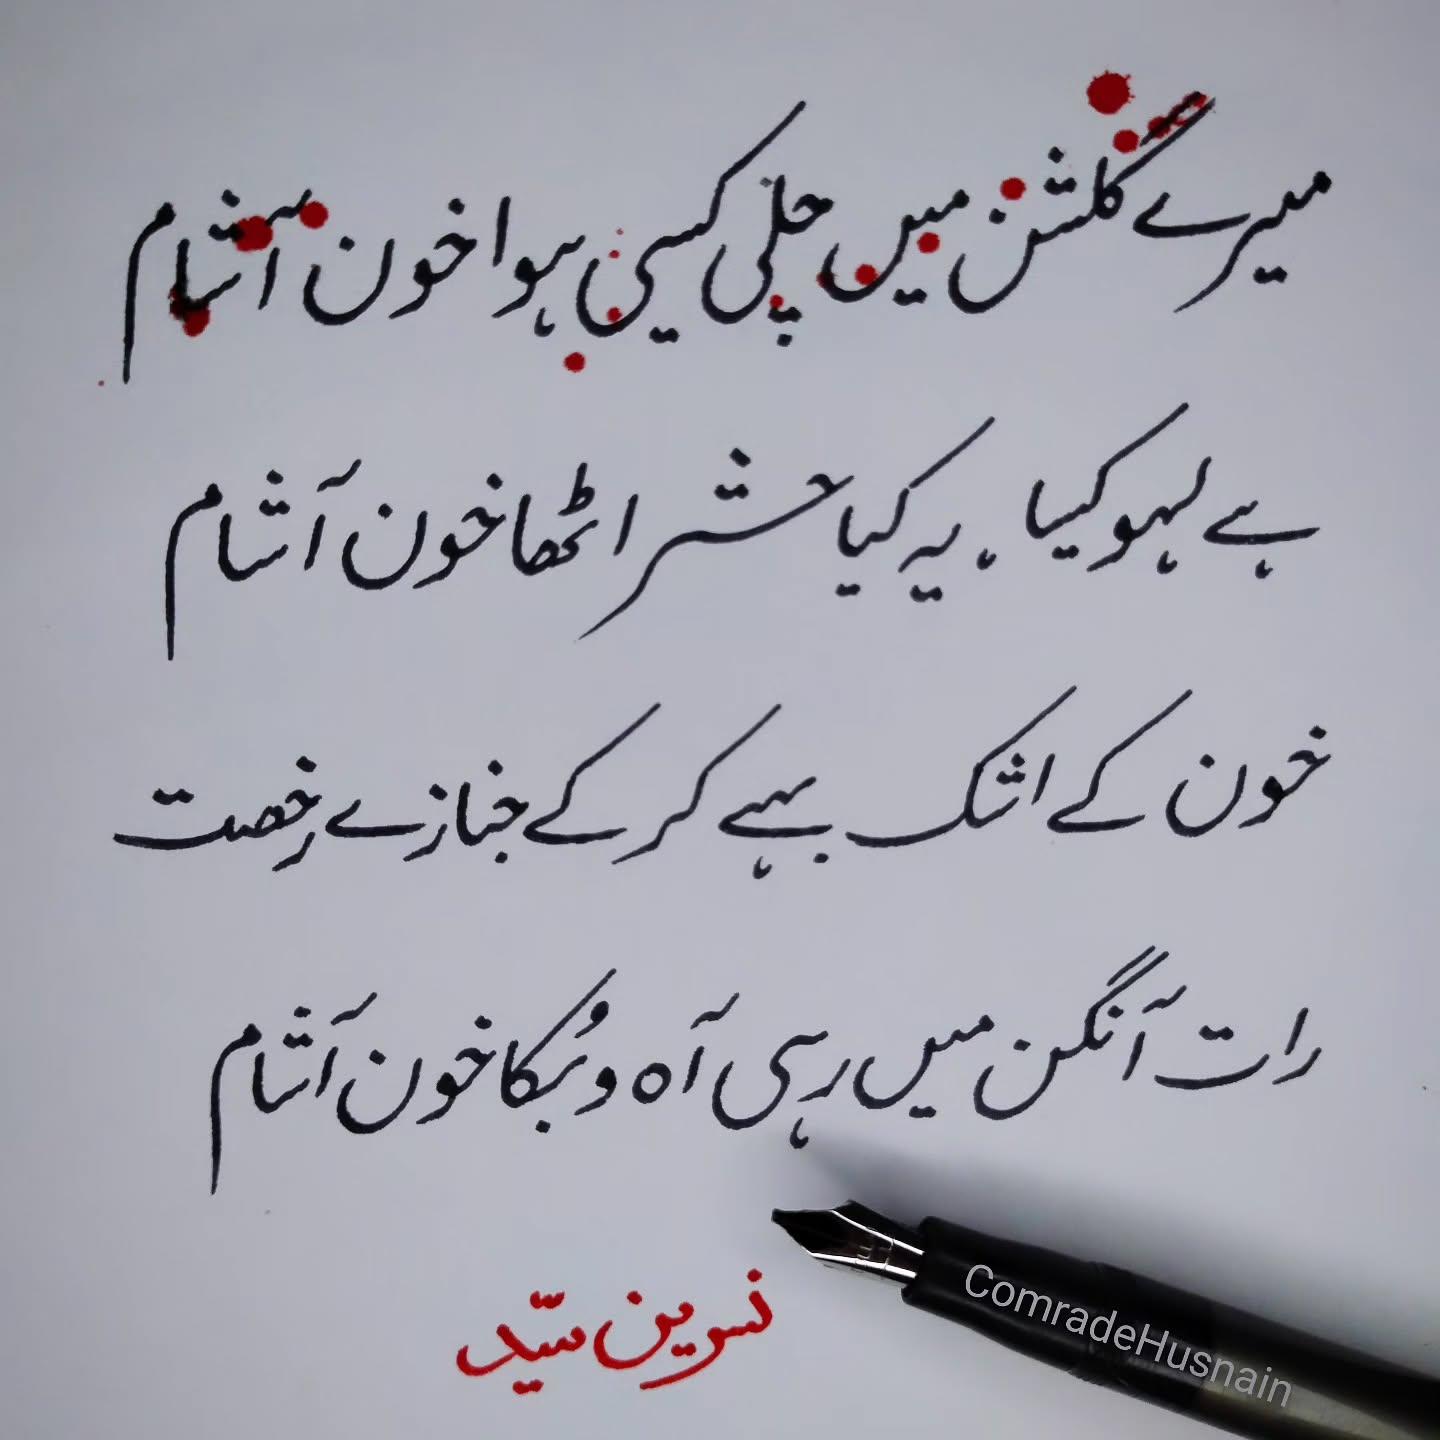 میرے گلشن میں چلی کیسی ہوا خون آشام
ہے لہو کیسا ، یہ کیا حشر اٹھا خون آشام
خون کے اشک بہے کر کے جنازے رخصت
رات آنگن میں رہی آہ و بُکا خون آشام
نسرین سیّد
ComradeHusnain